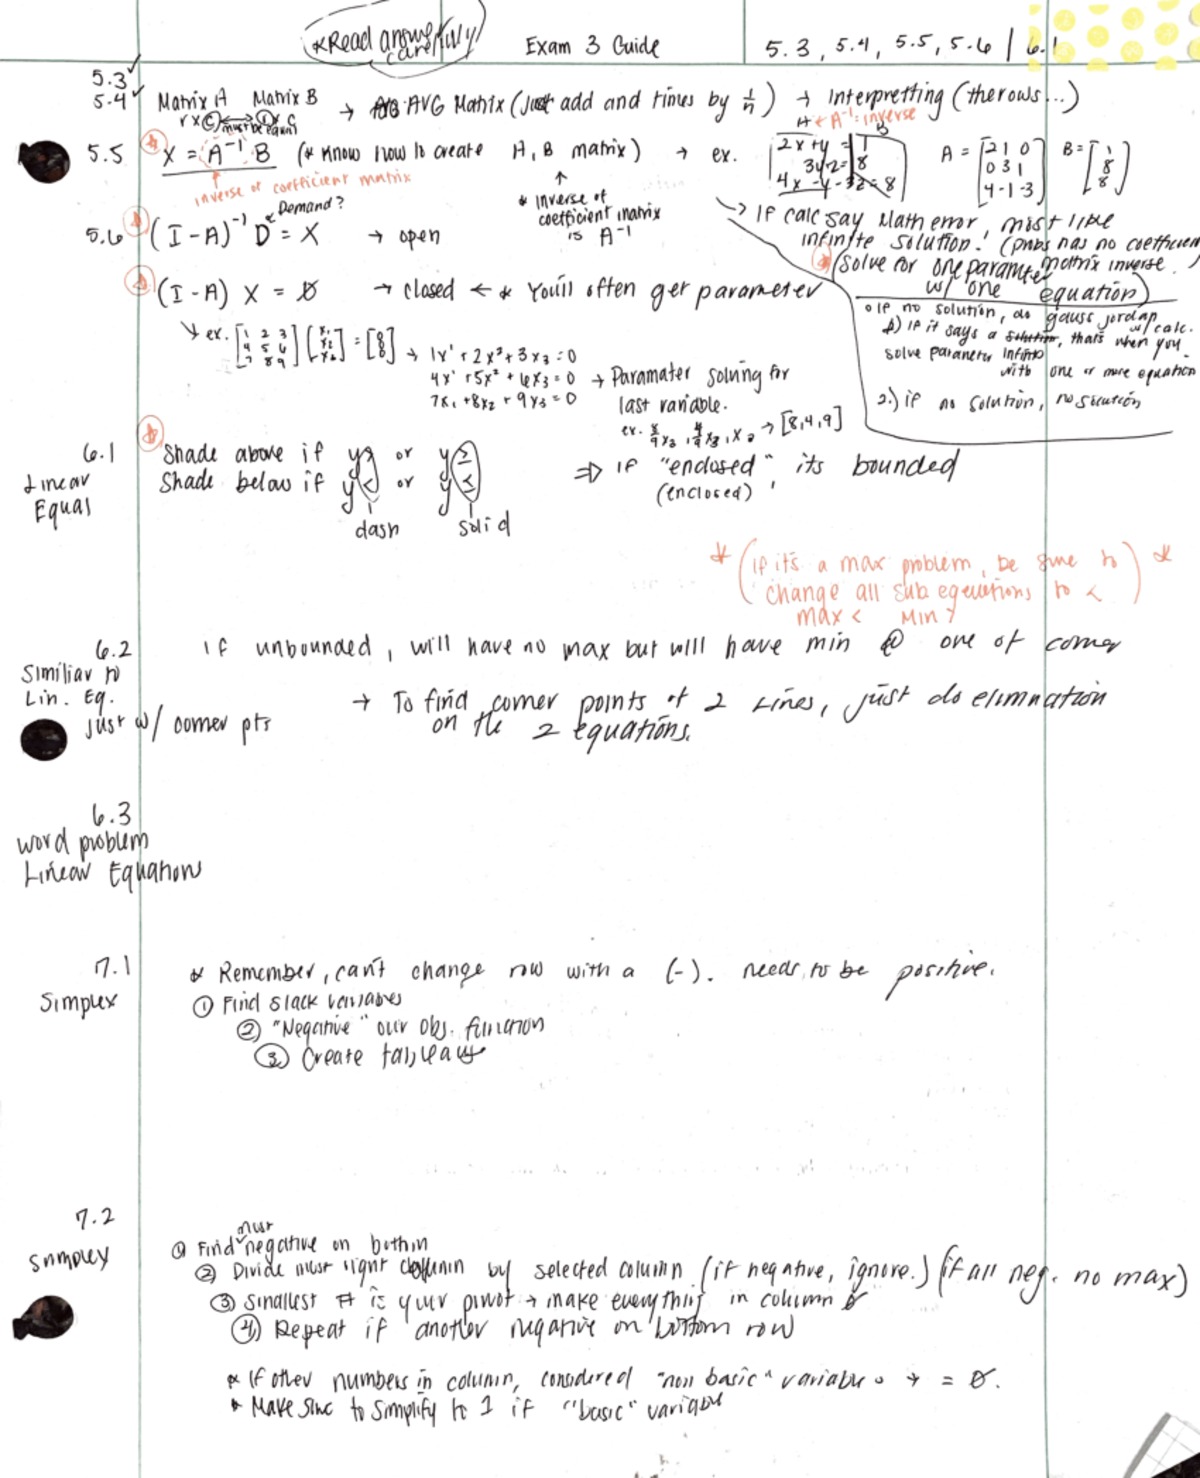 *Read answer carefully
Exam 3 Guide
5.3, 5.4, 5.5, 5.6 | 6.1
5.3 ✓
5.4 ✓
Matrix A Matrix B → AVG Matrix (just add and times by 1/n) → Interpretting (the rows...)
r x c ↔ r x c
must be equal
A ← A⁻¹ = inverse
B
5.5 * X = A⁻¹ B (* Know how to create A, B matrix) → ex.
2x+y = 1
3y+z = 8
4x - y - 3z = 8
A = [2 1 0
0 3 1
4 -1 -3]
B = [1
8
8]
inverse of coefficient matrix
* inverse of
coefficient matrix
is A⁻¹
Demand?
5.6 * (I - A)⁻¹ D = X → open
→ If calc say Math error, most like
infinite solution. (Probs has no coefficient
matrix inverse.)
* (Solve for one parameter
w/ one equation)
* (I - A) X = 0 → closed ← * You'll often get parameter
o If no solution, do gauss jordan
w/ calc.
1) If it says a solution, thats when you
solve parameter infinite
with one or more equation
2.) if no solution, no solution
ex. [1 2 3
4 5 6
7 8 9] [x₁
x₂
x₃] = [0
0
0] → 1x¹ + 2x² + 3x₃ = 0
4x¹ + 5x² + 6x₃ = 0 → Paramater solving for
7x₁ + 8x₂ + 9x₃ = 0
last variable.
ex. 8/9 x₃, 4/9 x₃, x₃ → [8,4,9]
6.1
Linear
Equal
* Shade above if y > or y ≥
Shade below if y < or y ≤
dash
solid
⇒ If "enclosed", its bounded
(enclosed)
* (If it's a max problem, be sure to
change all sub equations to <) *
max < Min >
6.2
Similiar to
Lin. Eq.
just w/ corner pts
if unbounded, will have no max but will have min @ one of corner
→ To find corner points of 2 Lines, just do elimnation
on the 2 equations.
6.3
word problem
Linear Equations
7.1
Simplex
* Remember, can't change row with a (-). needs to be positive.
① Find slack variables
② "Negative" our obj. function
③ Create tableau
7.2
Simplex
① Find most negative on bottom
② Divide most right column by selected column (if negative, ignore.) (if all neg. no max)
③ Smallest # is your pivot → make everything in column 0
④ Repeat if another negative on bottom row
* If other numbers in column, considered "non basic" variable → = 0.
* Make sure to simplify to 1 if "basic" variable